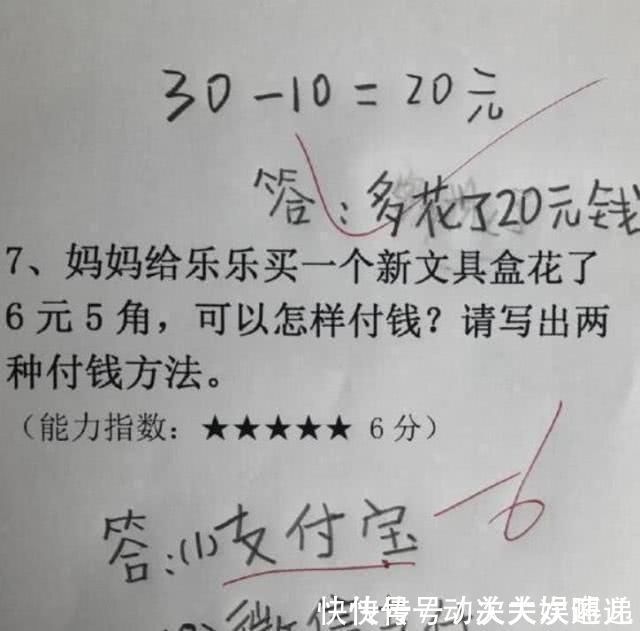 30-10=20元
答:多花了20元钱
7、妈妈给乐乐买一个新文具盒花了
6元5角，可以怎样付钱？请写出两
种付钱方法。
（能力指数：★★★★★ 6分）
-6
答:(1)支付宝
微信